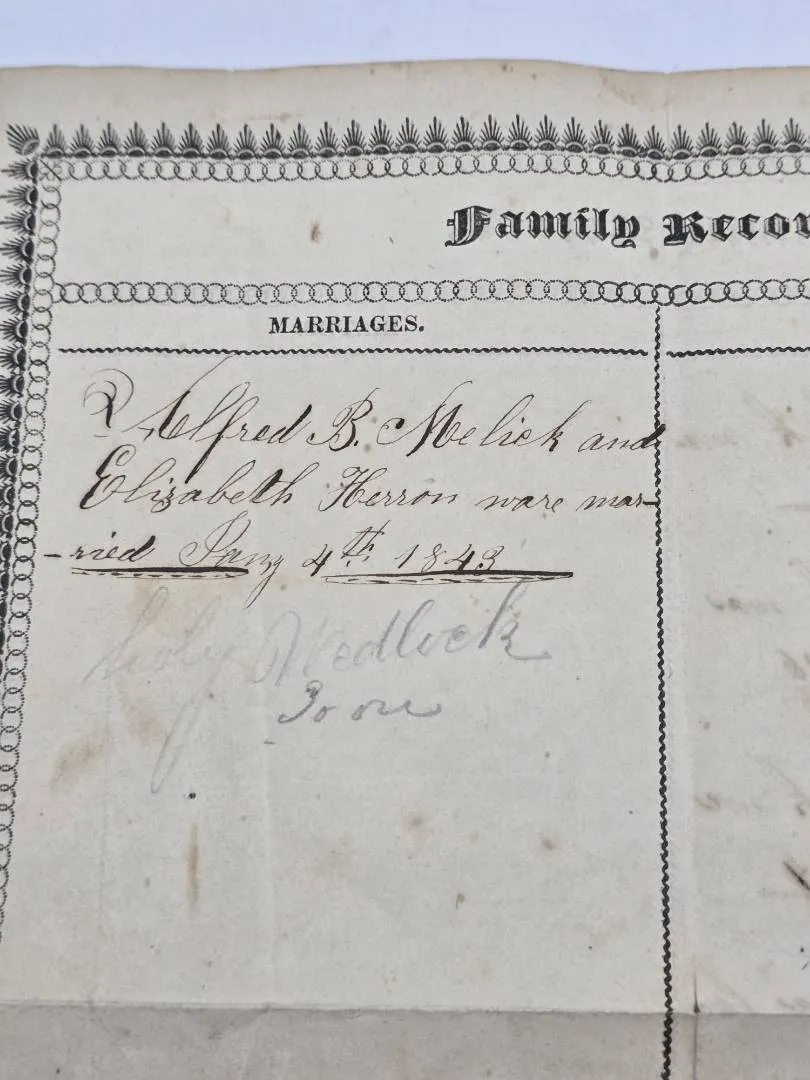 Family Recor
MARRIAGES.
Alfred B. Melick and
Elizabeth Herron ware mar-
-ried Jany 4th 1843
holy Wedlock